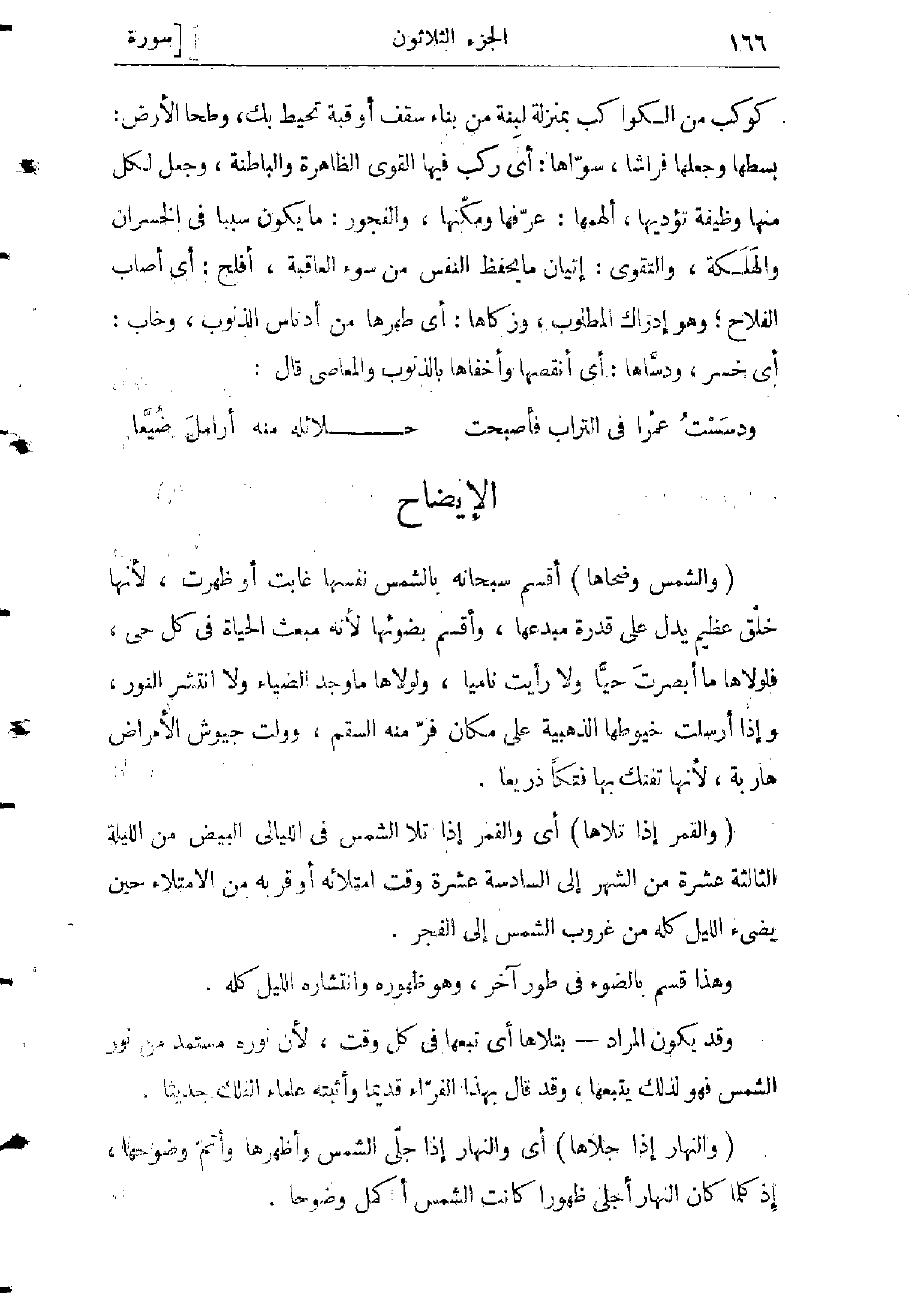 ١٦٦ الجزء الثلاثون [ سورة
كوكب من الكواكب بمنزلة لبِنة من بناء سقف أو قبة تحيط بك، وطحا الأرض:
بسطها وجعلها فراشا ، سوّاها : أى ركب فيها القوى الظاهرة والباطنة ، وجعل لكل
منها وظيفة تؤديها ، ألهمها : عرّفها ومكّنها ، والفجور : ما يكون سببا فى الخسران
والهَلَكة ، والتقوى : إتيان ما يحفظ النفس من سوء العاقبة ، أفلح : أى أصاب
الفلاح ؛ وهو إدراك المطلوب ، وزكاها : أى طهرها من أدناس الذنوب ، وخاب :
أى خسر ، ودسَّاها : أى أنقصها وأخفاها بالذنوب والمعاصى قال :
ودسَسْتُ عمْرا فى التراب فأصبحت حلائله منه أراملَ ضُيَّعا
الإيضاح
( والشمس وضحاها ) أقسم سبحانه بالشمس نفسها غابت أو ظهرت ، لأنها
خلْق عظيم يدل على قدرة مبدعها ، وأقسم بضوئها لأنه مبعث الحياة فى كل حى ،
فلولاها ما أبصرتَ حيًّا ولا رأيت ناميا ، ولولاها ما وجد الضياء ولا انتشر النور ،
وإذا أرسلت خيوطها الذهبية على مكان فرّ منه السقم ، وولت جيوش الأمراض
هاربة ، لأنها تفتك بها فتكاً ذريعا .
( والقمر إذا تلاها ) أى والقمر إذا تلا الشمس فى الليالى البيض من الليلة
الثالثة عشرة من الشهر إلى السادسة عشرة وقت امتلائه أو قربه من الامتلاء حين
يضىء الليل كله من غروب الشمس إلى الفجر .
وهذا قسم بالضوء فى طور آخر ، وهو ظهوره وانتشاره الليل كله .
وقد يكون المراد — بتلاها أى تبعها فى كل وقت ، لأن نوره مستمد من نور
الشمس فهو لذلك يتبعها ، وقد قال بهذا الفرّاء قديما وأثبته علماء الفلك حديثا .
( والنهار إذا جلاها ) أى والنهار إذا جلّى الشمس وأظهرها وأتمّ وضوحها ،
إذ كلما كان النهار أجلى ظهورا كانت الشمس أكمل وضوحا .